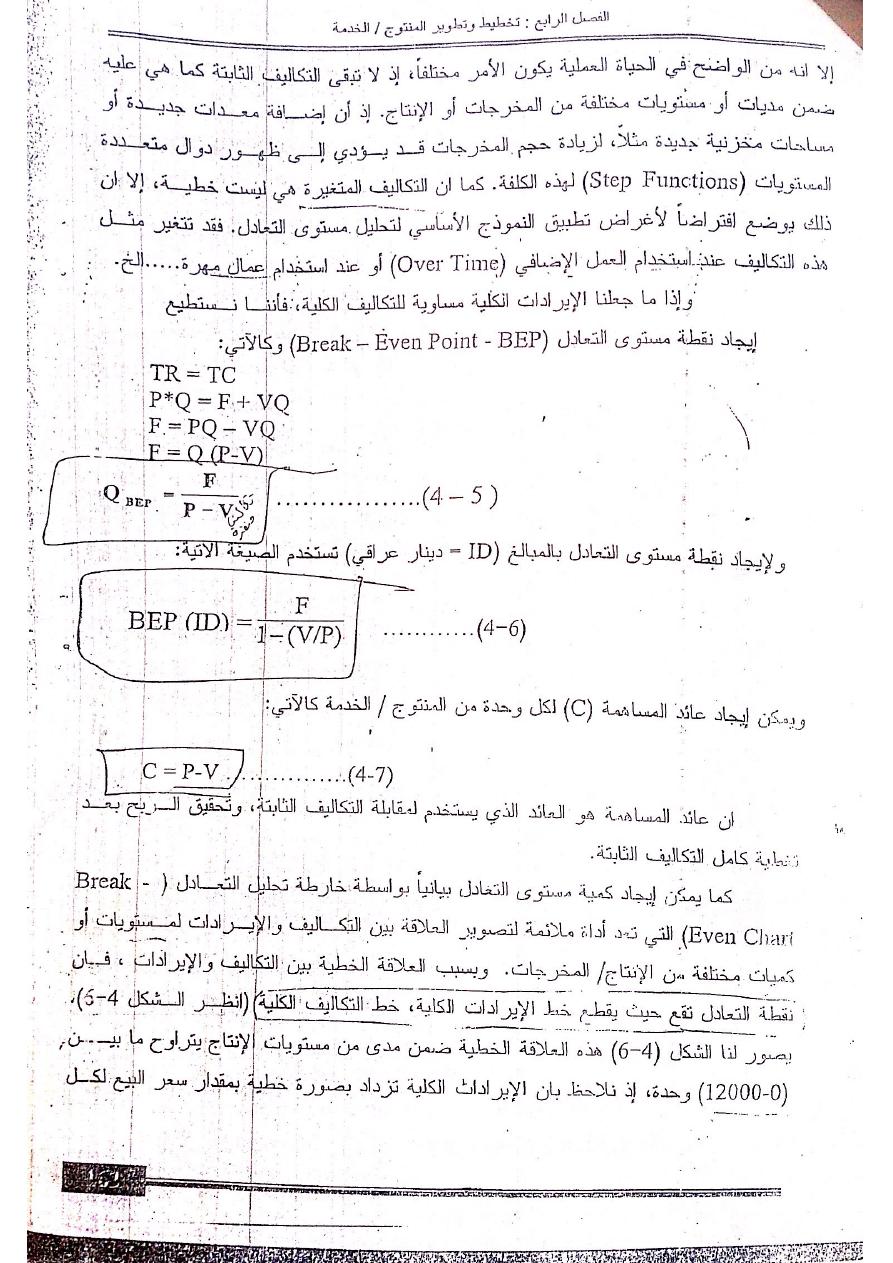 الفصل الرابع : تخطيط وتطوير المنتوج / الخدمة
إلا انه من الواضح في الحياة العملية يكون الأمر مختلفاً، إذ لا تبقى التكاليف الثابتة كما هي عليه
ضمن مديات أو مستويات مختلفة من المخرجات أو الإنتاج. إذ أن إضافة معدات جديدة أو
مساحات مخزنية جديدة مثلاً، لزيادة حجم المخرجات قد يؤدي إلى ظهور دوال متعددة
المستويات (Step Functions) لهذه الكلفة. كما ان التكاليف المتغيرة هي ليست خطية، إلا ان
ذلك يوضع افتراضاً لأغراض تطبيق النموذج الأساسي لتحليل مستوى التعادل. فقد تتغير مثل
هذه التكاليف عند استخدام العمل الإضافي (Over Time) أو عند استخدام عمال مهرة.....الخ.
وإذا ما جعلنا الإيرادات الكلية مساوية للتكاليف الكلية، فأننا نستطيع
إيجاد نقطة مستوى التعادل (Break – Even Point - BEP) وكالآتي:
TR = TC
P*Q = F + VQ
F = PQ – VQ
F = Q (P-V)
Q BEP = F / P – V ..................(4 – 5 )
ولإيجاد نقطة مستوى التعادل بالمبالغ (ID = دينار عراقي) تستخدم الصيغة الاتية:
BEP (ID) = F / 1–(V/P) ............(4-6)
ويمكن إيجاد عائد المساهمة (C) لكل وحدة من المنتوج / الخدمة كالآتي:
C = P-V ...............(4-7)
ان عائد المساهمة هو العائد الذي يستخدم لمقابلة التكاليف الثابتة، وتحقيق الربح بعد
تغطية كامل التكاليف الثابتة.
كما يمكن إيجاد كمية مستوى التعادل بيانياً بواسطة خارطة تحليل التعادل ( Break -
Even Chart) التي تعد أداة ملائمة لتصوير العلاقة بين التكاليف والإيرادات لمستويات أو
كميات مختلفة من الإنتاج/ المخرجات. وبسبب العلاقة الخطية بين التكاليف والإيرادات ، فإن
نقطة التعادل تقع حيث يقطع خط الإيرادات الكلية، خط التكاليف الكلية (انظر الشكل 4-6).
يصور لنا الشكل (4-6) هذه العلاقة الخطية ضمن مدى من مستويات الإنتاج يتراوح ما بين
(0-12000) وحدة، إذ نلاحظ بان الإيرادات الكلية تزداد بصورة خطية بمقدار سعر البيع لكل